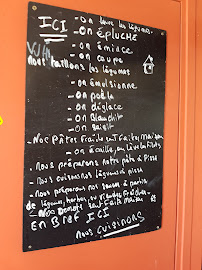 ICI - on lave les légumes
- on ÉPLUCHE
- on émince
- on coupe
Nous taillons les légumes
- on émulsionne
- on poêle
- on déglace
- on Blanchit
- on saisit
- Nos Pâtes Fraîche sont faites maison
- on écaille, on lève les filets
- nous préparons notre pâte à Pizza
- nous cuisinons légumes et pizza
- nous préparons nos sauces à partir
de légumes, herbes, ou viandes Fraîches
- Nos Desserts sont faits maison
EN BREF ICI
nous CUISINONS